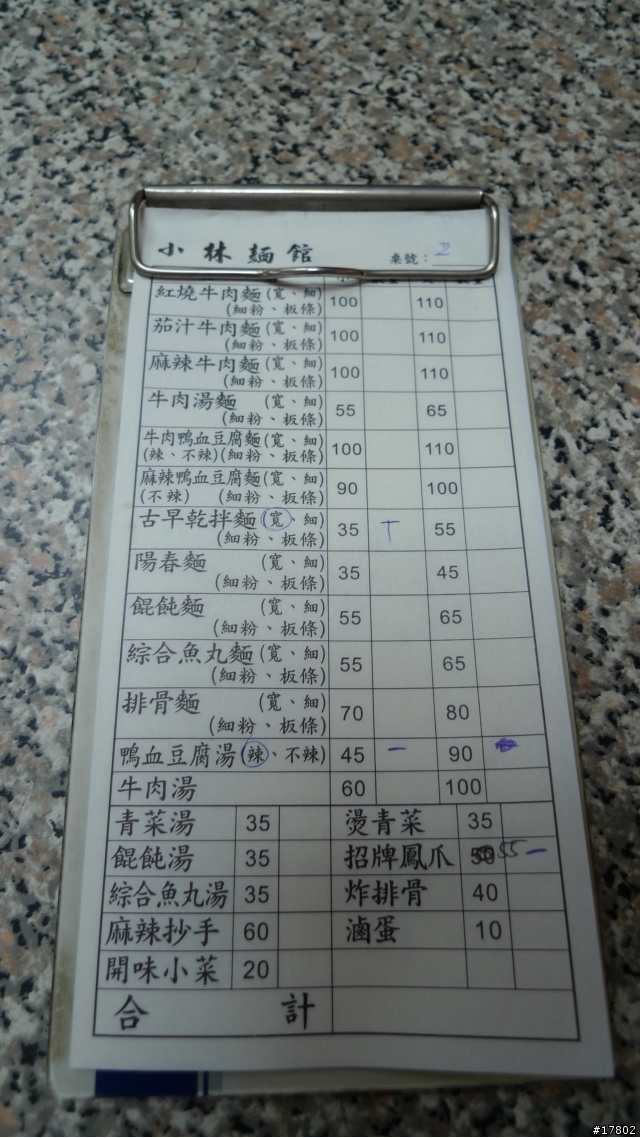 小林麵館 桌號：
紅燒牛肉麵(寬、細) 100 110
(細粉、板條)
茄汁牛肉麵(寬、細) 100 110
(細粉、板條)
麻辣牛肉麵(寬、細) 100 110
(細粉、板條)
牛肉湯麵 (寬、細) 55 65
(細粉、板條)
牛肉鴨血豆腐麵(寬、細) 100 110
(辣、不辣)(細粉、板條)
麻辣鴨血豆腐麵(寬、細) 90 100
(不辣) (細粉、板條)
古早乾拌麵(寬、細) 35 55
(細粉、板條)
陽春麵 (寬、細) 35 45
(細粉、板條)
餛飩麵 (寬、細) 55 65
(細粉、板條)
綜合魚丸麵(寬、細) 55 65
(細粉、板條)
排骨麵 (寬、細) 70 80
(細粉、板條)
鴨血豆腐湯(辣、不辣) 45 一 90
牛肉湯 60 100
青菜湯 35 燙青菜 35
餛飩湯 35 招牌鳳爪 50 55 一
綜合魚丸湯 35 炸排骨 40
麻辣抄手 60 滷蛋 10
開味小菜 20
合計
#17802